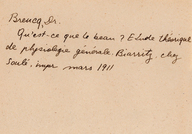 Breucq, Dr.
Qu'est-ce que le beau ? Etude théorique
de physiologie générale. Biarritz, chez
Soulé, impr. mars 1911